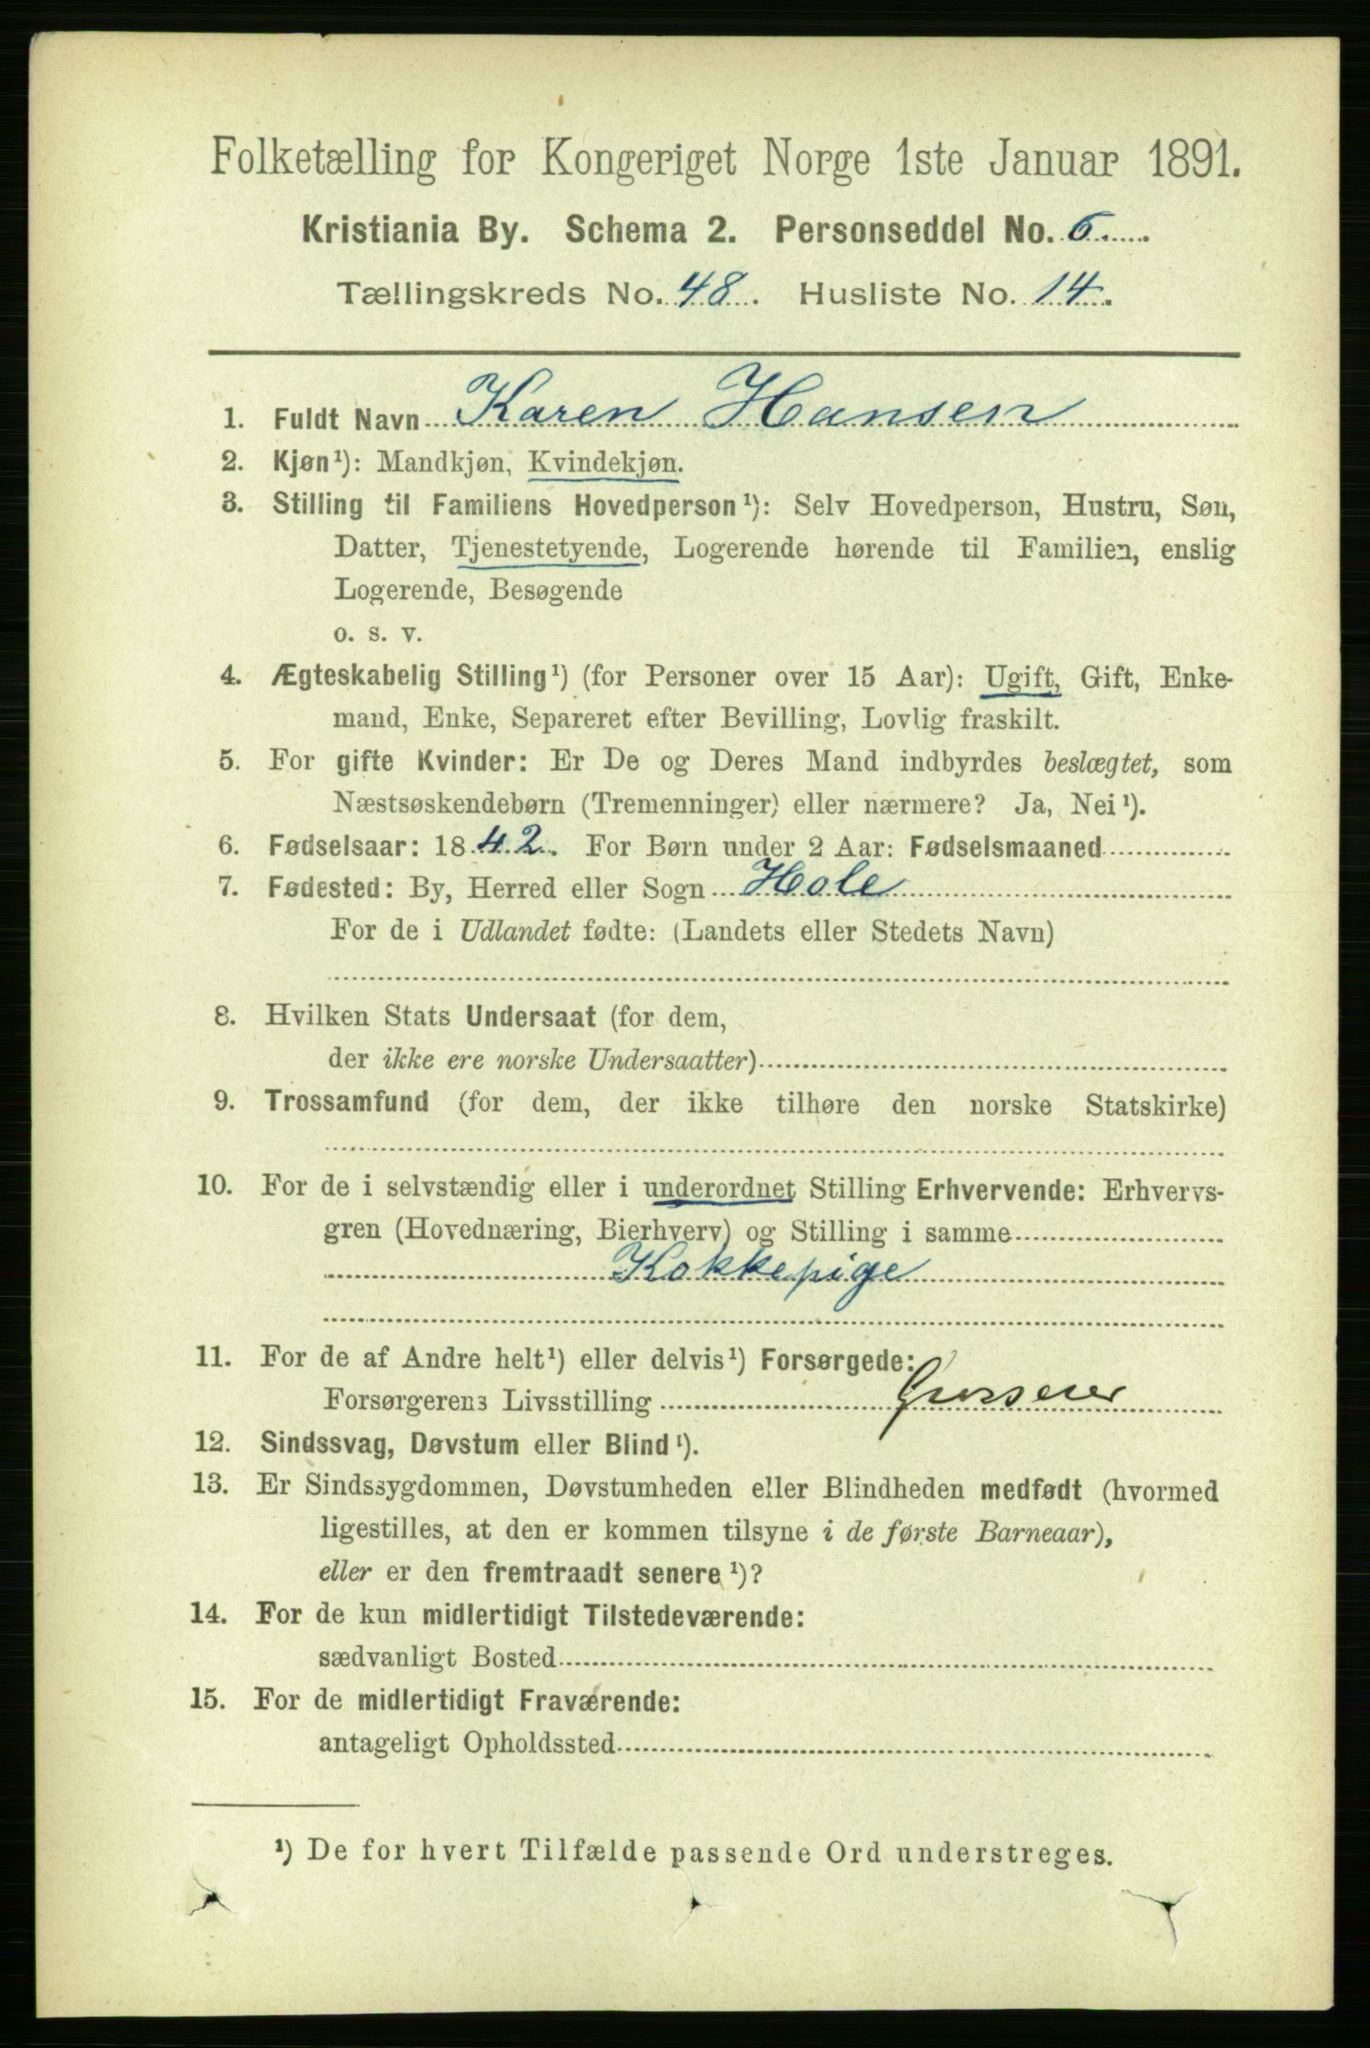 Folketælling for Kongeriget Norge 1ste Januar 1891.
Kristiania By. Schema 2. Personseddel No. 6.
Tællingskreds No. 48. Husliste No. 14.
1. Fuldt Navn Karen Hansen
2. Kjøn¹): Mandkjøn, Kvindekjøn.
3. Stilling til Familiens Hovedperson¹): Selv Hovedperson, Hustru, Søn,
Datter, Tjenestetyende, Logerende hørende til Familien, enslig
Logerende, Besøgende
o. s. v.
4. Ægteskabelig Stilling¹) (for Personer over 15 Aar): Ugift, Gift, Enke-
mand, Enke, Separeret efter Bevilling, Lovlig fraskilt.
5. For gifte Kvinder: Er De og Deres Mand indbyrdes beslægtet, som
Næstsøskendebørn (Tremenninger) eller nærmere? Ja, Nei¹).
6. Fødselsaar: 1842. For Børn under 2 Aar: Fødselsmaaned
7. Fødested: By, Herred eller Sogn Hole
For de i Udlandet fødte: (Landets eller Stedets Navn)
8. Hvilken Stats Undersaat (for dem,
der ikke ere norske Undersaatter)
9. Trossamfund (for dem, der ikke tilhøre den norske Statskirke)
10. For de i selvstændig eller i underordnet Stilling Erhvervende: Erhvervs-
gren (Hovednæring, Bierhverv) og Stilling i samme
Kokkepige
11. For de af Andre helt¹) eller delvis¹) Forsørgede:
Forsørgerens Livsstilling Grosserer
12. Sindssvag, Døvstum eller Blind¹).
13. Er Sindssygdommen, Døvstumheden eller Blindheden medfødt (hvormed
ligestilles, at den er kommen tilsyne i de første Barneaar),
eller er den fremtraadt senere¹)?
14. For de kun midlertidigt Tilstedeværende:
sædvanligt Bosted
15. For de midlertidigt Fraværende:
antageligt Opholdssted
¹) De for hvert Tilfælde passende Ord understreges.